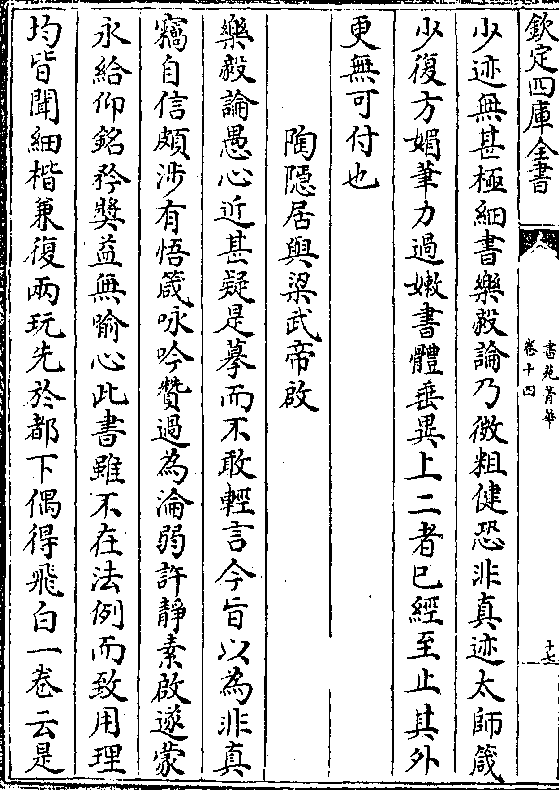 欽定四庫全書
書苑菁華
卷十四
十七
少迹無甚極細書樂毅論乃微粗健恐非真迹太師箴
少復方媚筆力過嫩書體乖異上二者已經至止其外
更無可付也
陶隱居與梁武帝啟
樂毅論愚心近甚疑是摹而不敢輕言今旨以為非真
竊自信頗涉有悟箴咏吟贊過為淪弱許靜素啟遂蒙
永給仰銘矜奬益無喻心此書雖不在法例而致用理
均皆聞細楷兼復兩玩先於都下偶得飛白一卷云是